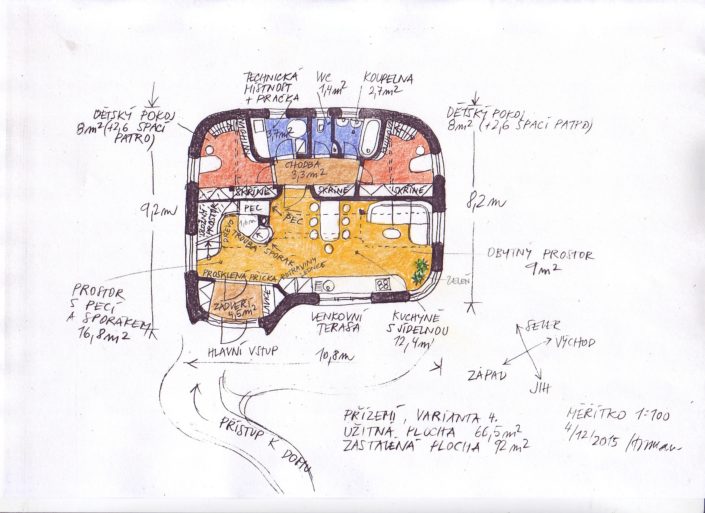 TECHNICKÁ
MÍSTNOST
+ PRAČKA
WC
1,4m²
KOUPELNA
2,7m²
DĚTSKÝ POKOJ
8m² (+2,6 SPACÍ
PATRO)
DĚTSKÝ POKOJ
8m² (+2,6 SPACÍ
PATRO)
3,7m²
CHODBA
3,3m²
SKŘÍNĚ
SKŘÍNĚ
SKŘÍNĚ
PEC
PEC
TROUBA
SPORÁK
DŘEVO
9,2m
8,2m
PROSKLENÁ PŘÍČKA
POTRAVINY
ZÁDVEŘÍ
4,5m²
OBYTNÝ PROSTOR
9m²
ZELEŇ
PROSTOR
S PECÍ
A SPORÁKEM
16,8m²
HLAVNÍ VSTUP
VENKOVNÍ
TERASA
KUCHYNĚ
S JÍDELNOU
12,4m²
10,8m
SEVER
VÝCHOD
ZÁPAD
JIH
PŘÍSTUP K DOMU
PŘÍZEMÍ, VARIANTA 4.
UŽITNÁ PLOCHA 66,5m²
ZASTAVĚNÁ PLOCHA 92m²
MĚŘÍTKO 1:100
4/12/2015